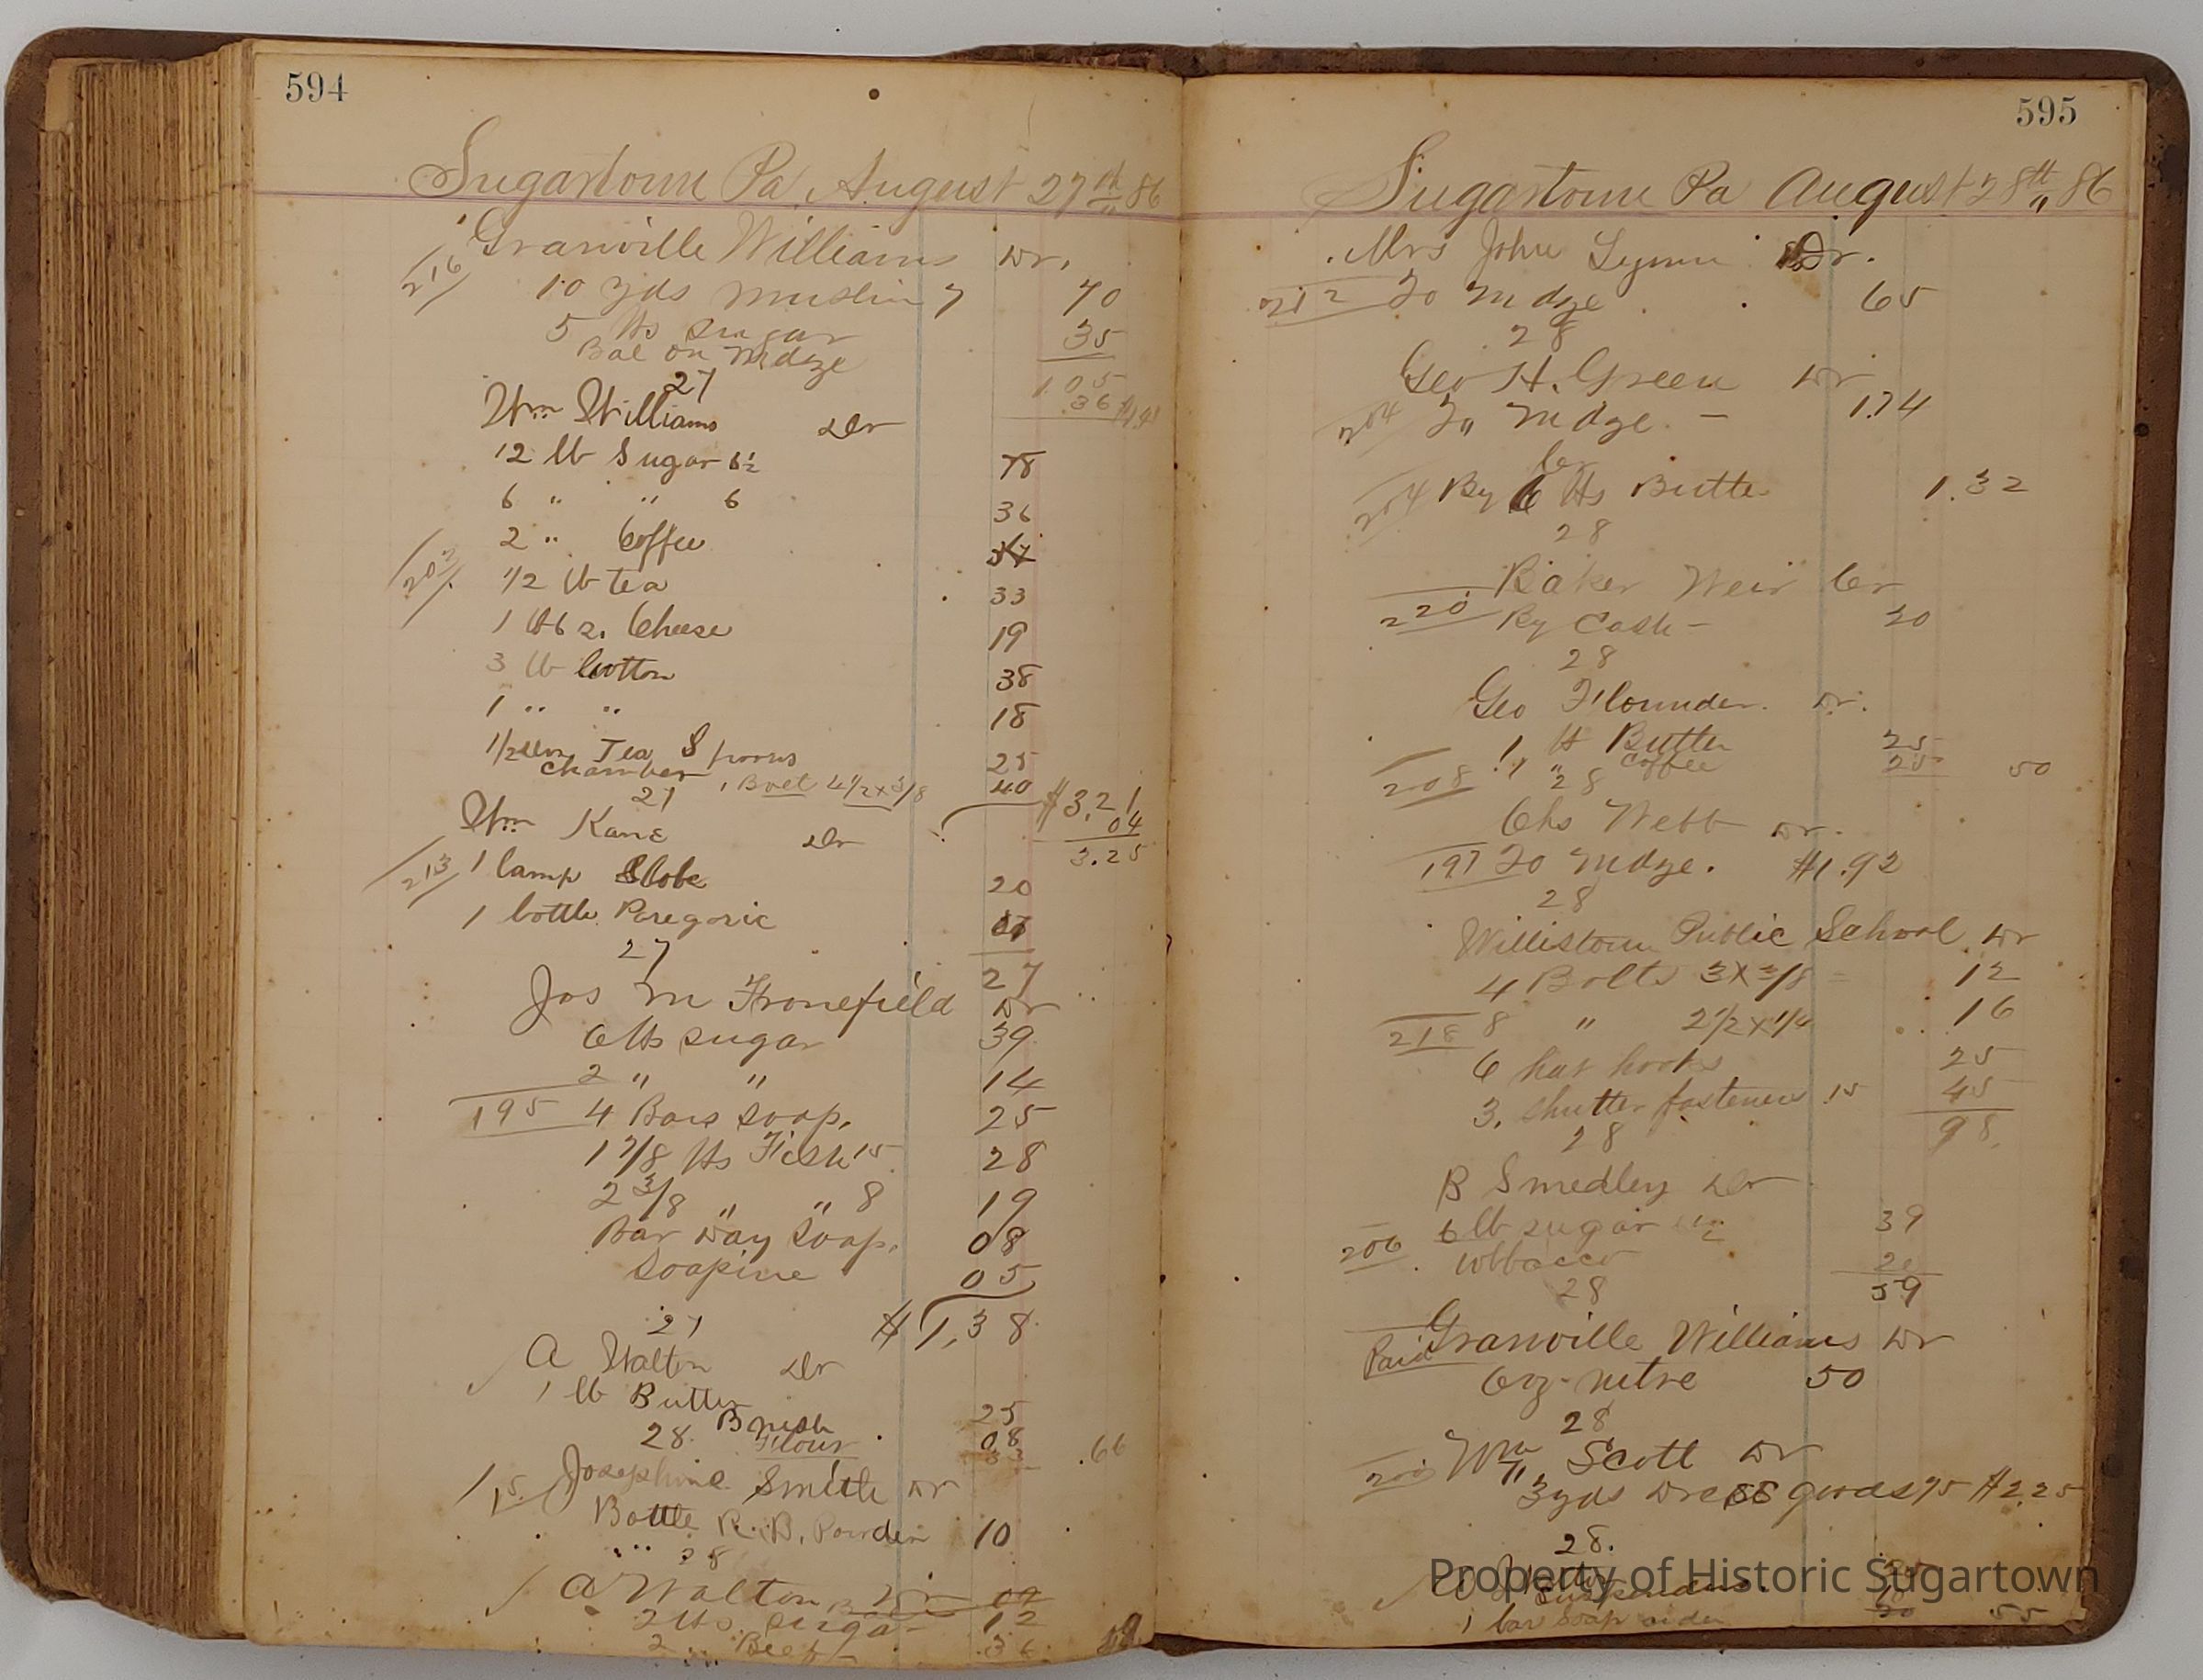 594
Sugartown Pa, August 27th 86
Granville Williams Dr,
216
10 yds muslin 7 70
5 lbs sugar 35
Bal on Mdze
1 05
36
27
Wm Williams Dr
12 lb Sugar 6½ 78
6 " " 6 36
2 " Coffee
203
1/2 lb tea 33
1 lb 6 z. Cheese 19
3 lb Cotton 38
1 " " 18
1/2 doz Tea Spoons 25
Chamber, 1 Bolt 4 1/2 x 3/8 40
$3,21
04
3.25
27
Wm Kane Dr
213
1 lamp Globe 20
1 bottle Paregoric
27
27
Jos M Fronefield Dr
6 lbs sugar 39
2 " " 14
195 4 Bars soap, 25
1 7/8 lbs Fish 15 28
2 3/8 " " 8 19
Bar Day Soap, 08
Soapine 05
$1,38
27
A Walton Dr
1 lb Butter 25
Brush 08
28. Flour 33 .66
Josephine Smith Dr
15
Bottle R. B. Powder 10
" 28
A Walton Dr
2 lbs. sugar 12
2 Beef 36
595
Sugartown Pa August 28th, 86
Mrs John Lynn Dr.
212 To Mdze 65
28
Geo H. Green Dr
204 To Mdze. — 1.74
Cr
204 By 6 lbs Butter 1.32
28
Baker Weir Cr
220 By Cash — 20
28
Geo Flounder. Dr.
1 lb Butter 25
208 1 " Coffee 25 50
28
Chs Webb Dr.
197 To Mdze. $1.92
28
Willistown Public School Dr
4 Bolts 3 x 3/8 = 12
218 8 " 2 1/2 x 1/4 16
6 hat hooks 25
3. shutter fasteners 15 45
98.
28
B Smedley Dr
6 lb sugar 6½ 39
206 tobbacco 20
59
28
Granville Williams Dr
Paid
6 oz. nitre 50
28
Wm Scott Dr
3 yds Dress goods 75 $2.25
28.
Suspenders.
1 bar soap 55
Property of Historic Sugartown